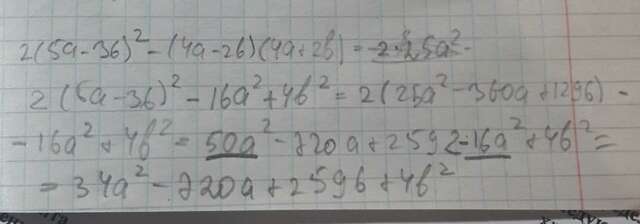 2(5a-36)²-(4a-2b)(4a+2b)=
2(5a-36)²-16a²+4b²=2(25a²-360a+1296)-
-16a²+4b²=50a²-720a+2592-16a²+4b²=
=34a²-720a+2596+4b²